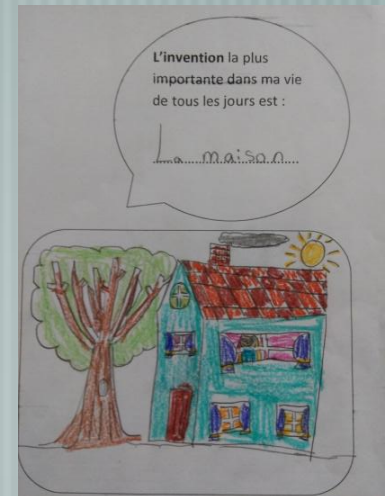 L'invention la plus
importante dans ma vie
de tous les jours est :
La maison